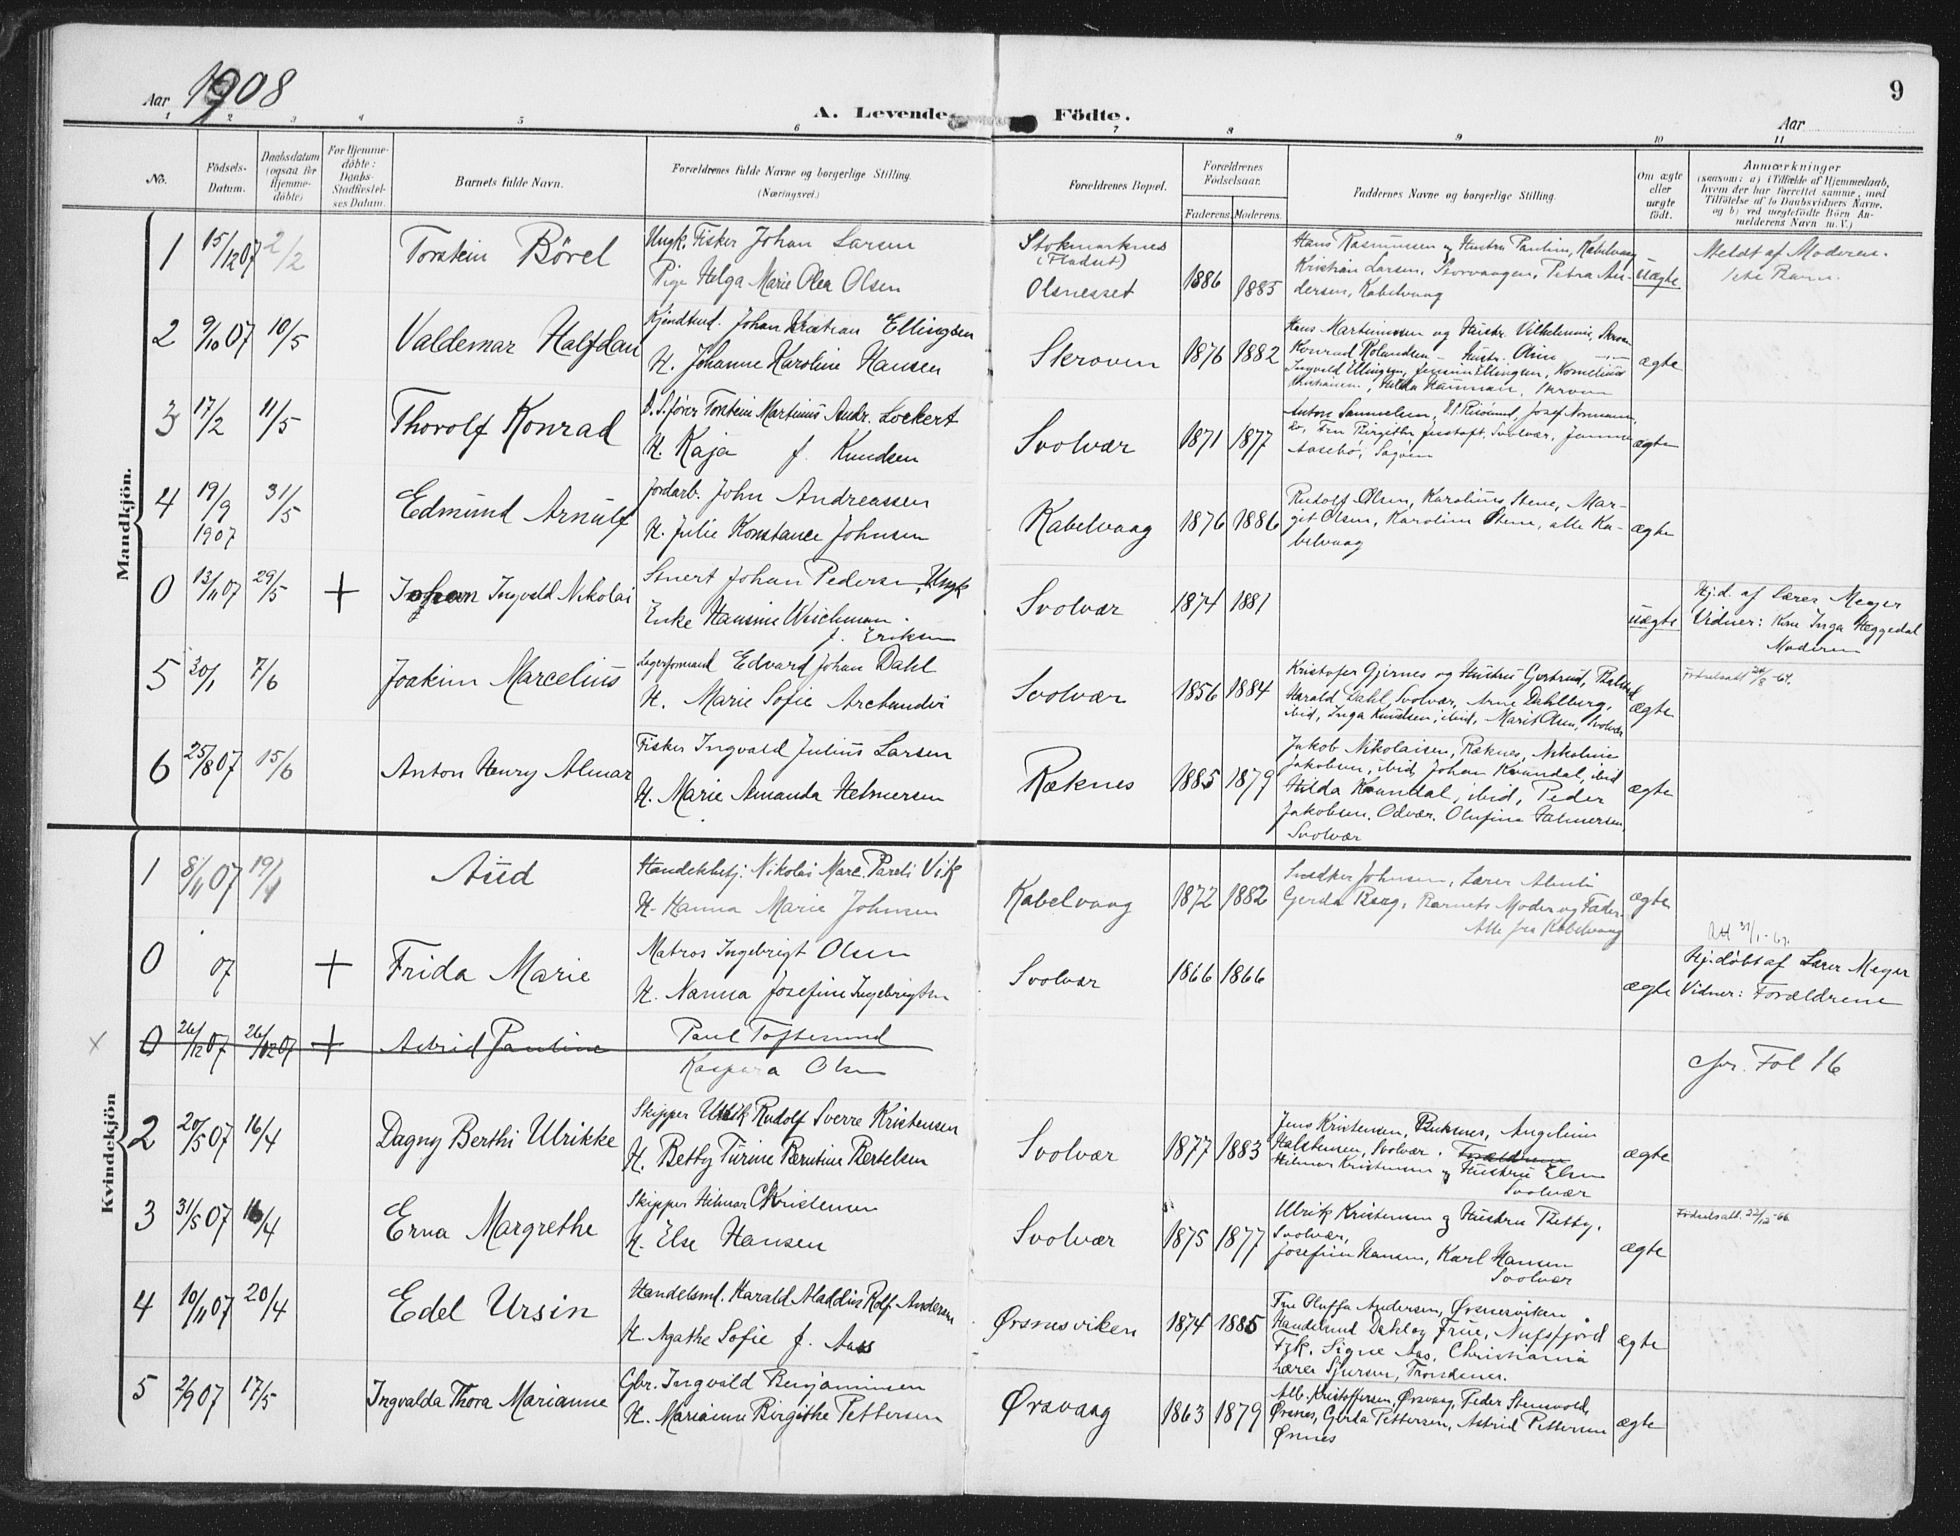 Aar 1908
A. Levende Födte.
9
Aar
1 2 3 4 5 6 7 8 9 10 11
No.
Födsels-Datum.
Daabsdatum (ogsaa for Hjemme-döbte)
For Hjemme-döbte: Daabs-Stadfæstel-ses Datum.
Barnets fulde Navn.
Forældrenes fulde Navne og borgerlige Stilling. (Næringsvei.)
Forældrenes Bopæl.
Forældrenes Födselsaar.
Faderens. Moderens.
Faddernes Navne og borgerlige Stilling.
Om ægte eller uægte födt.
Anmærkninger
(saasom: a) i Tilfælde af Hjemmedaab,
hvem der har forrettet samme, med
Tilföielse af to Daabsvidners Navne,
og b) ved uægtefödte Börn An-
melderens Navn m. V.)
Mandkjön.
1 15/12 07 2/2 Torstein Börel
Ungk. Fisker Johan Larsen
Pige Helga Marie Olea Olsen
Stokmarknes
(Fladset)
Olsnesset
1886 1885
Hans Rasmussen og Hustru Pauline, Kabelvaag
Kristian Larsen, Storvaagen, Petra An-
dersen, Kabelvaag
uægte
Meldt af Moderen.
2 9/10 07 10/5 Valdemar Halfdan
Johan Kristian Ellingsen
H. Johanne Karoline Hansen
Skroven
1876 1882
Hans Martinussen og Hustr. Vilhelmine, Skroven
Konrad Rolandsen - Hustr. Oline
Ingvald Ellingsen, Jensine Ellingsen, Kornelius
Hilda Hanman, Skroven
ægte
3 17/2 11/5 Thorolf Konrad
D.S.fører Torstein Martinus Andr. Lockert
H. Kaja f. Knudsen
Svolvær
1871 1877
Anton Samuelsen, Josef Normann,
Fru Birgithe Jentoft, Svolvær,
ægte
4 19/9 1907 31/5 Edmund Arnulf
Jordarb. John Andreassen
H. Julie Konstance Johnsen
Kabelvaag
1876 1886
Rudolf Olsen, Karolius Stene, Mar-
git Olsen, Karoline Stene, alle Ka-
belvaag
ægte
0 13/11 07 29/5 + Johan Ingvald Nikolai
Snert Johan Pedersen, Ungk
Enke Hansine Wichman
f. Eriksen
Svolvær
1874 1881
uægte
Hj.d. af Lærer Meyer
Vidner: Kone Inga Heggedal
Moderen
5 30/1 7/6 Joakim Marcelius
Lagerformand Edvard Johan Dahl
H. Marie Sofie Archander
Svolvær
1856 1884
Kristofer Gjernes og Hustru Gertrud,
Harald Dahl, Svolvær, Arne Dahlberg,
ibid, Inga Knudsen, ibid, Marit Olsen, Svolvær
ægte
Fødselsatt 20/8-64.
6 25/8 07 15/6 Anton Henry Almar
Fisker Ingvald Julius Larsen
H. Marie Amanda Helmersen
Ræknes
1885 1879
Jakob Nikolaisen, Ræknes, Nikoline
Jakobsen, ibid, Johan Kvandal, ibid
Hilda Kvandal, ibid, Peder
Jakobsen, Odvær, Olufine Halmersen,
Svolvær
ægte
Kvindekjön
1 8/11 07 19/1 Aud
Handelsbetj. Nikolai Marc. Pareli Vik
H. Hanna Marie Johnsen
Kabelvaag
1872 1882
Snedker Johnsen, Lærer
Gerda Berg, Barnets Moder og Fader.
Alle fra Kabelvaag
ægte
0 07 + Frida Marie
Matros Ingebrigt Olsen
H. Nanna Josefine Ingebrigtsen
Svolvær
1866 1866
ægte
Att 31/1-67.
Hj.döbt af Lærer Meyer
Vidner: Forældrene
x 0 26/12 07 26/12 07 + Astrid Pauline
Paul Toftesund
Kaspara Olsen
cfr. Fol 16
2 20/5 07 16/4 Dagny Berthi Ulrikke
Skipper Ulrik Rudolf Sverre Kristensen
H. Betty Turine Berntine Bertelsen
Svolvær
1877 1883
Jens Kristensen, Ræknes, Angeline
Halstensen, Svolvær. Forældrene
Hilmar Kristensen og Hustru Else
Svolvær
ægte
3 31/5 07 16/4 Erna Margrethe
Skipper Hilmar Kristensen
H. Else Hansen
Svolvær
1875 1877
Ulrik Kristensen og Hustru Betty,
Svolvær,
Josefine Hansen, Karl Hansen
Svolvær
ægte
Fødselsatt. 22/12-66
4 10/11 07 20/4 Edel Ursin
Handelsmd. Harald Aladdius Rolf Andersen
H. Agathe Sofie f. Aass
Ørsnesviken
1874 1885
Fru Oluffa Andersen, Ørsnesviken
Handelsmd Dahl og Frue, Nufsfjord
Frk. Signe Aas, Christiania
Lærer Sjursen, Trondenes.
ægte
5 2/9 07 17/5 Ingvalda Thora Marianne
Gbr. Ingvald Benjaminsen
H. Marianne Birgithe Pettersen
Ørsvaag
1863 1879
Alb. Kristoffersen, Ørsvaag, Peder Stensvold,
Ørsnes, Gerda Pettersen, Astrid Pettersen
Ørsnes
ægte